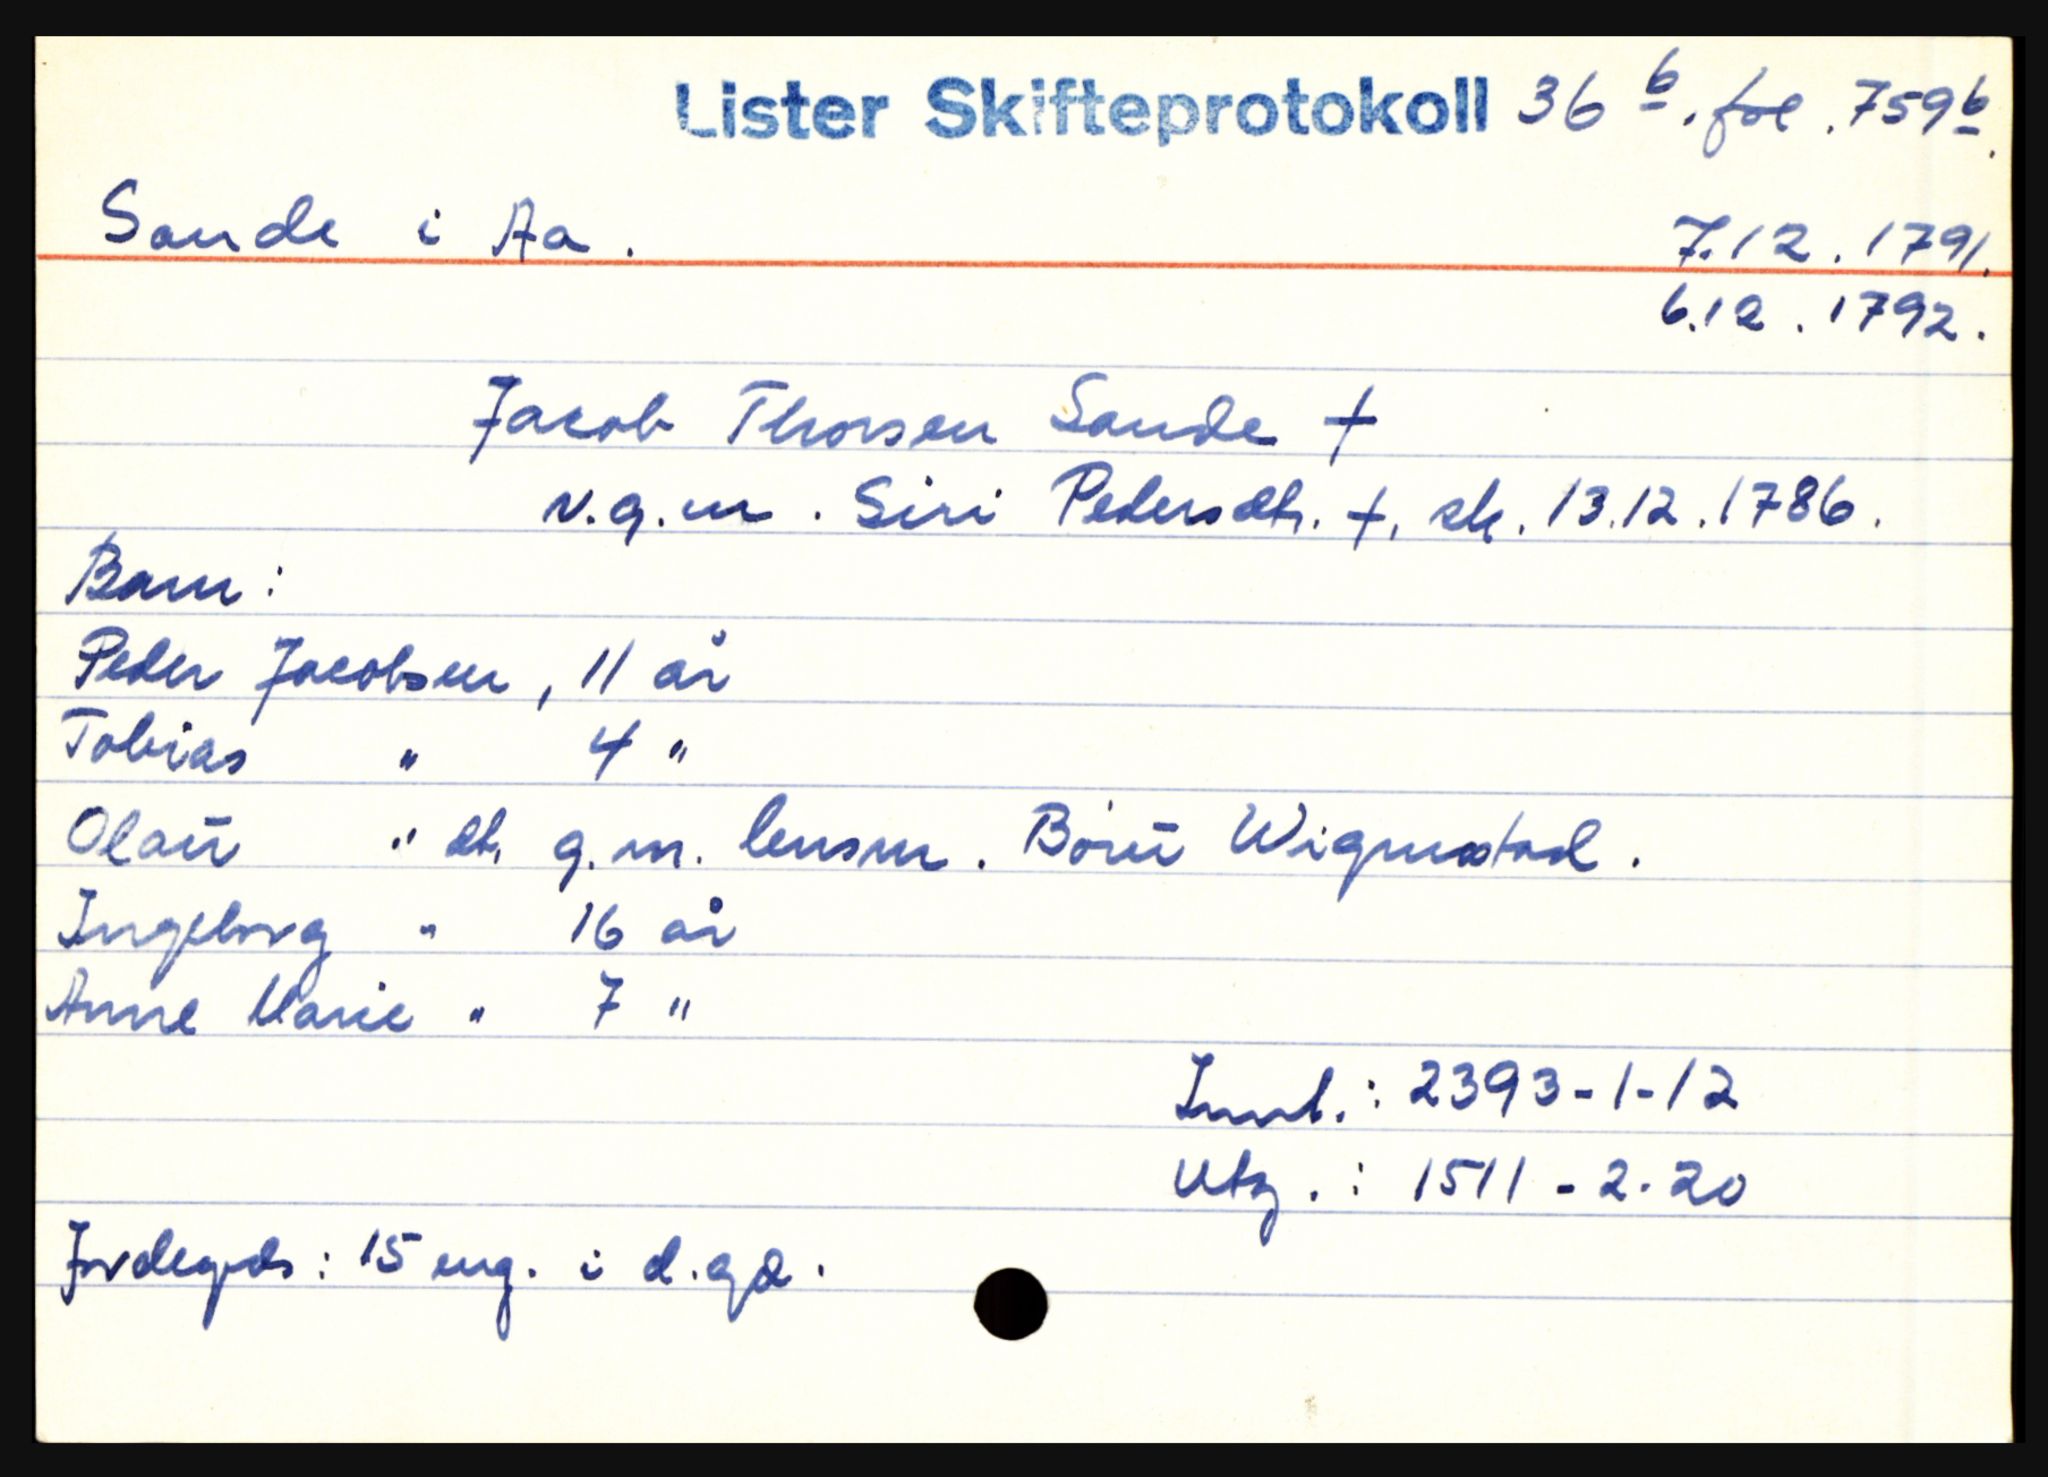 Lister Skifteprotokoll 36 b. fol. 759 b.
Sande i Aa. 7.12.1791.
6.12.1792.
Jacob Thorsen Sande †
v.g.m. Siri Pedersdt. †, sk. 13.12.1786.
Barn:
Peder Jacobsen, 11 år
Tobias " 4 "
Olaū " dt. g.m. lensm. Börü Wigmostad.
Ingeborg " 16 år
Anne Marie " 7 "
Innt.: 2393-1-12
Utg.: 1511-2-20
Jordegds: 15 eng. i d. gd.